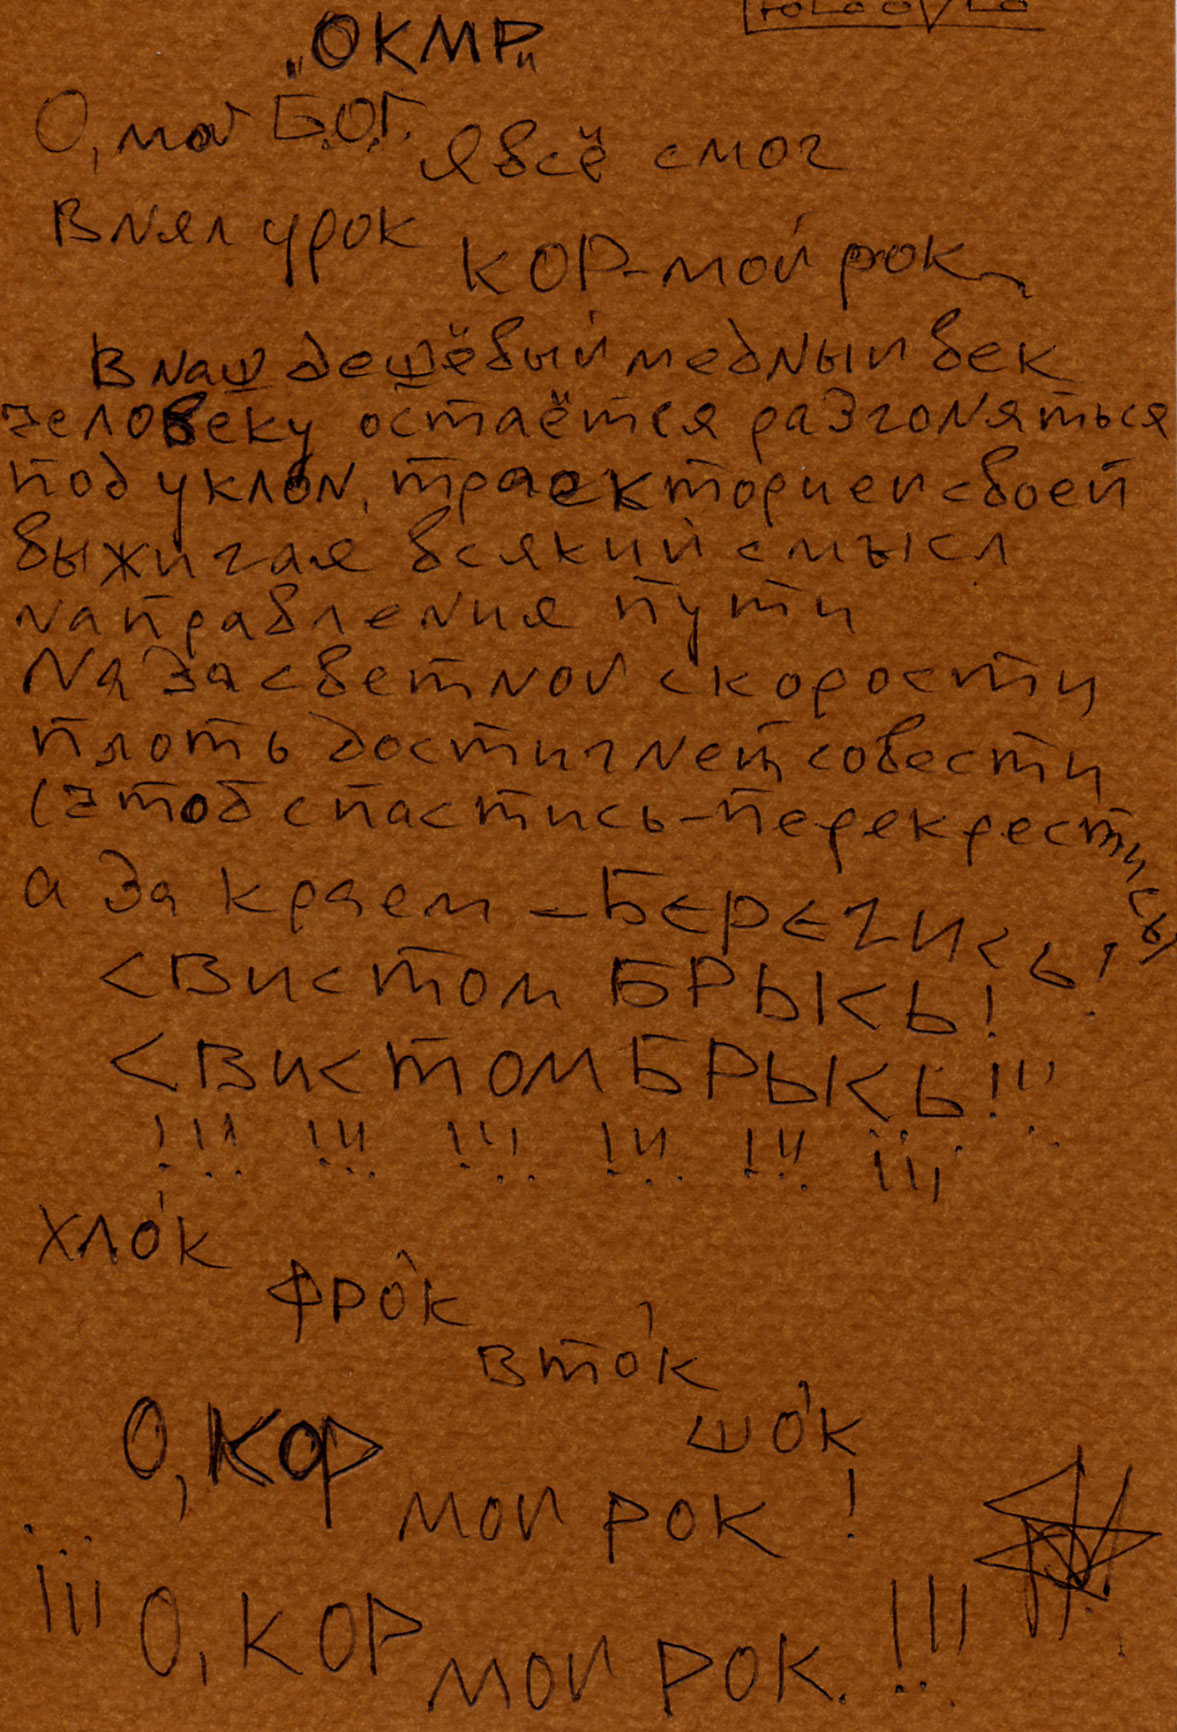 „ОКМР“
О, мой Б.О.Г.
Я всё смог
Внял урок
КОР-мой рок
В наш дешёвый медный век
человеку остаётся разгоняться
под уклон, траекторией своей
выжигая всякий смысл
направления пути
На засветной скорости
плоть достигнет совести
(чтоб спастись-перекрестись)
а за краем - БЕРЕГИСЬ!
СВистом БРЫКСЬ!
СВистом БРЫКСЬ!!!
!!! !!! !!! !!! !!! ¡¡¡
ХЛО́К
ФРО́К
ВТО́К
ШО́К
О, КОР
мой рок!
¡¡¡ О, КОР
мой РОК. !!!